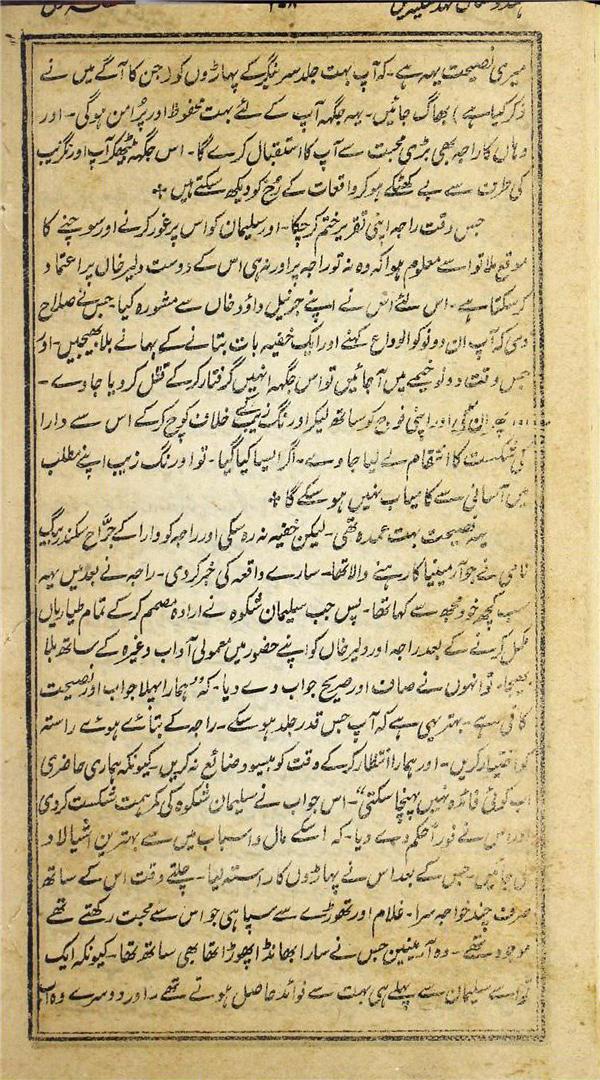 میری نصیحت یہہ ہے۔ کہ آپ بہت جلد سرینگر کے پہاڑوں کو (جن کا آگے میں نے
ذکر کیا ہے) بھاگ جائیں۔ یہہ جگہہ آپ کے لئے بہت محفوظ اور پُر امن ہوگی۔ اور
وہاں کا راجہ بھی بڑی محبت سے آپ کا استقبال کرے گا۔ اس جگہہ بیٹھکر آپ اورنگزیب
کی طرف سے بے کھٹکے ہوکر واقعات کے رُخ کو دیکھ سکتے ہیں ✤
جس وقت راجہ اپنی تقریر ختم کرچکا۔ اور سلیمان کو اس پر غور کرنے اور سوچنے کا
موقع ملا تو اسے معلوم ہوا کہ وہ نہ تو راجہ پر اور نہ ہی اس کے دوست دلیر خاں پر اعتماد
کرسکتا ہے۔ اس لئے اس نے اپنے جرنیل داؤد خاں سے مشورہ کیا۔ جس نے صلاح
دی کہ آپ ان دونو کو الوداع کہنے اور ایک خفیہ بات بتانے کے بہانے بلا بھیجیں۔ اور
جس وقت دونو خیمے میں آجائیں تو اس جگہہ انہیں گرفتار کرکے قتل کردیا جاوے۔
اور پھر ان کی اور اپنی فوج کو ساتھ لیکر اورنگ زیب کے خلاف کوچ کرکے اس سے دارا
کی شکست کا انتقام لے لیا جاوے۔ اگر ایسا کیا گیا۔ تو اورنگ زیب اپنے مطلب
میں آسانی سے کامیاب نہیں ہوسکے گا ✤
یہہ نصیحت بہت عمدہ تھی۔ لیکن خفیہ نہ رہ سکی اور راجہ کو دارا کے جرّاح سکندر بیگ
نامی نے جو آرمینیا کا رہنے والا تھا۔ سارے واقعہ کی خبر کردی۔ راجہ نے بعد میں یہہ
سب کچھ خود مجھ سے کہا تھا۔ پس جب سلیمان شکوہ نے ارادہ مصمم کرکے تمام طیاریاں
مکمل کرلینے کے بعد راجہ اور دلیر خاں کو اپنے حضور میں معمولی آداب وغیرہ کے ساتھ بلا
بھیجا۔ تو انہوں نے صاف اور صریح جواب دے دیا۔ کہ "ہمارا پہلا جواب اور نصیحت
کافی ہے۔ بہتر یہی ہے کہ آپ جس قدر جلد ہوسکے۔ راجہ کے بتائے ہوئے راستہ
کو اختیار کریں۔ اور ہمارا انتظار کرکے وقت کو بیسود ضائع نہ کریں۔ کیونکہ ہماری حاضری
اب کوئی فائدہ نہیں پہنچا سکتی"۔ اس جواب نے سلیمان شکوہ کی کمر ہمت شکست کردی
اور اس نے فوراً حکم دے دیا۔ کہ اسکے مال و اسباب میں سے بہترین اشیا لاد
لی جائیں۔ جس کے بعد اس نے پہاڑوں کا راستہ لیا۔ چلتے وقت اس کے ساتھ
صرف چند خواجہ سرا۔ غلام اور تھوڑے سے سپاہی جو اس سے محبت رکھتے تھے
موجود تھے۔ وہ آرمینین جس نے سارا بھانڈا پھوڑا تھا بھی ساتھ تھا۔ کیونکہ ایک
تو اسے سلیمان سے پہلے ہی بہت سے فوائد حاصل ہوتے تھے۔ اور دوسرے وہ اب